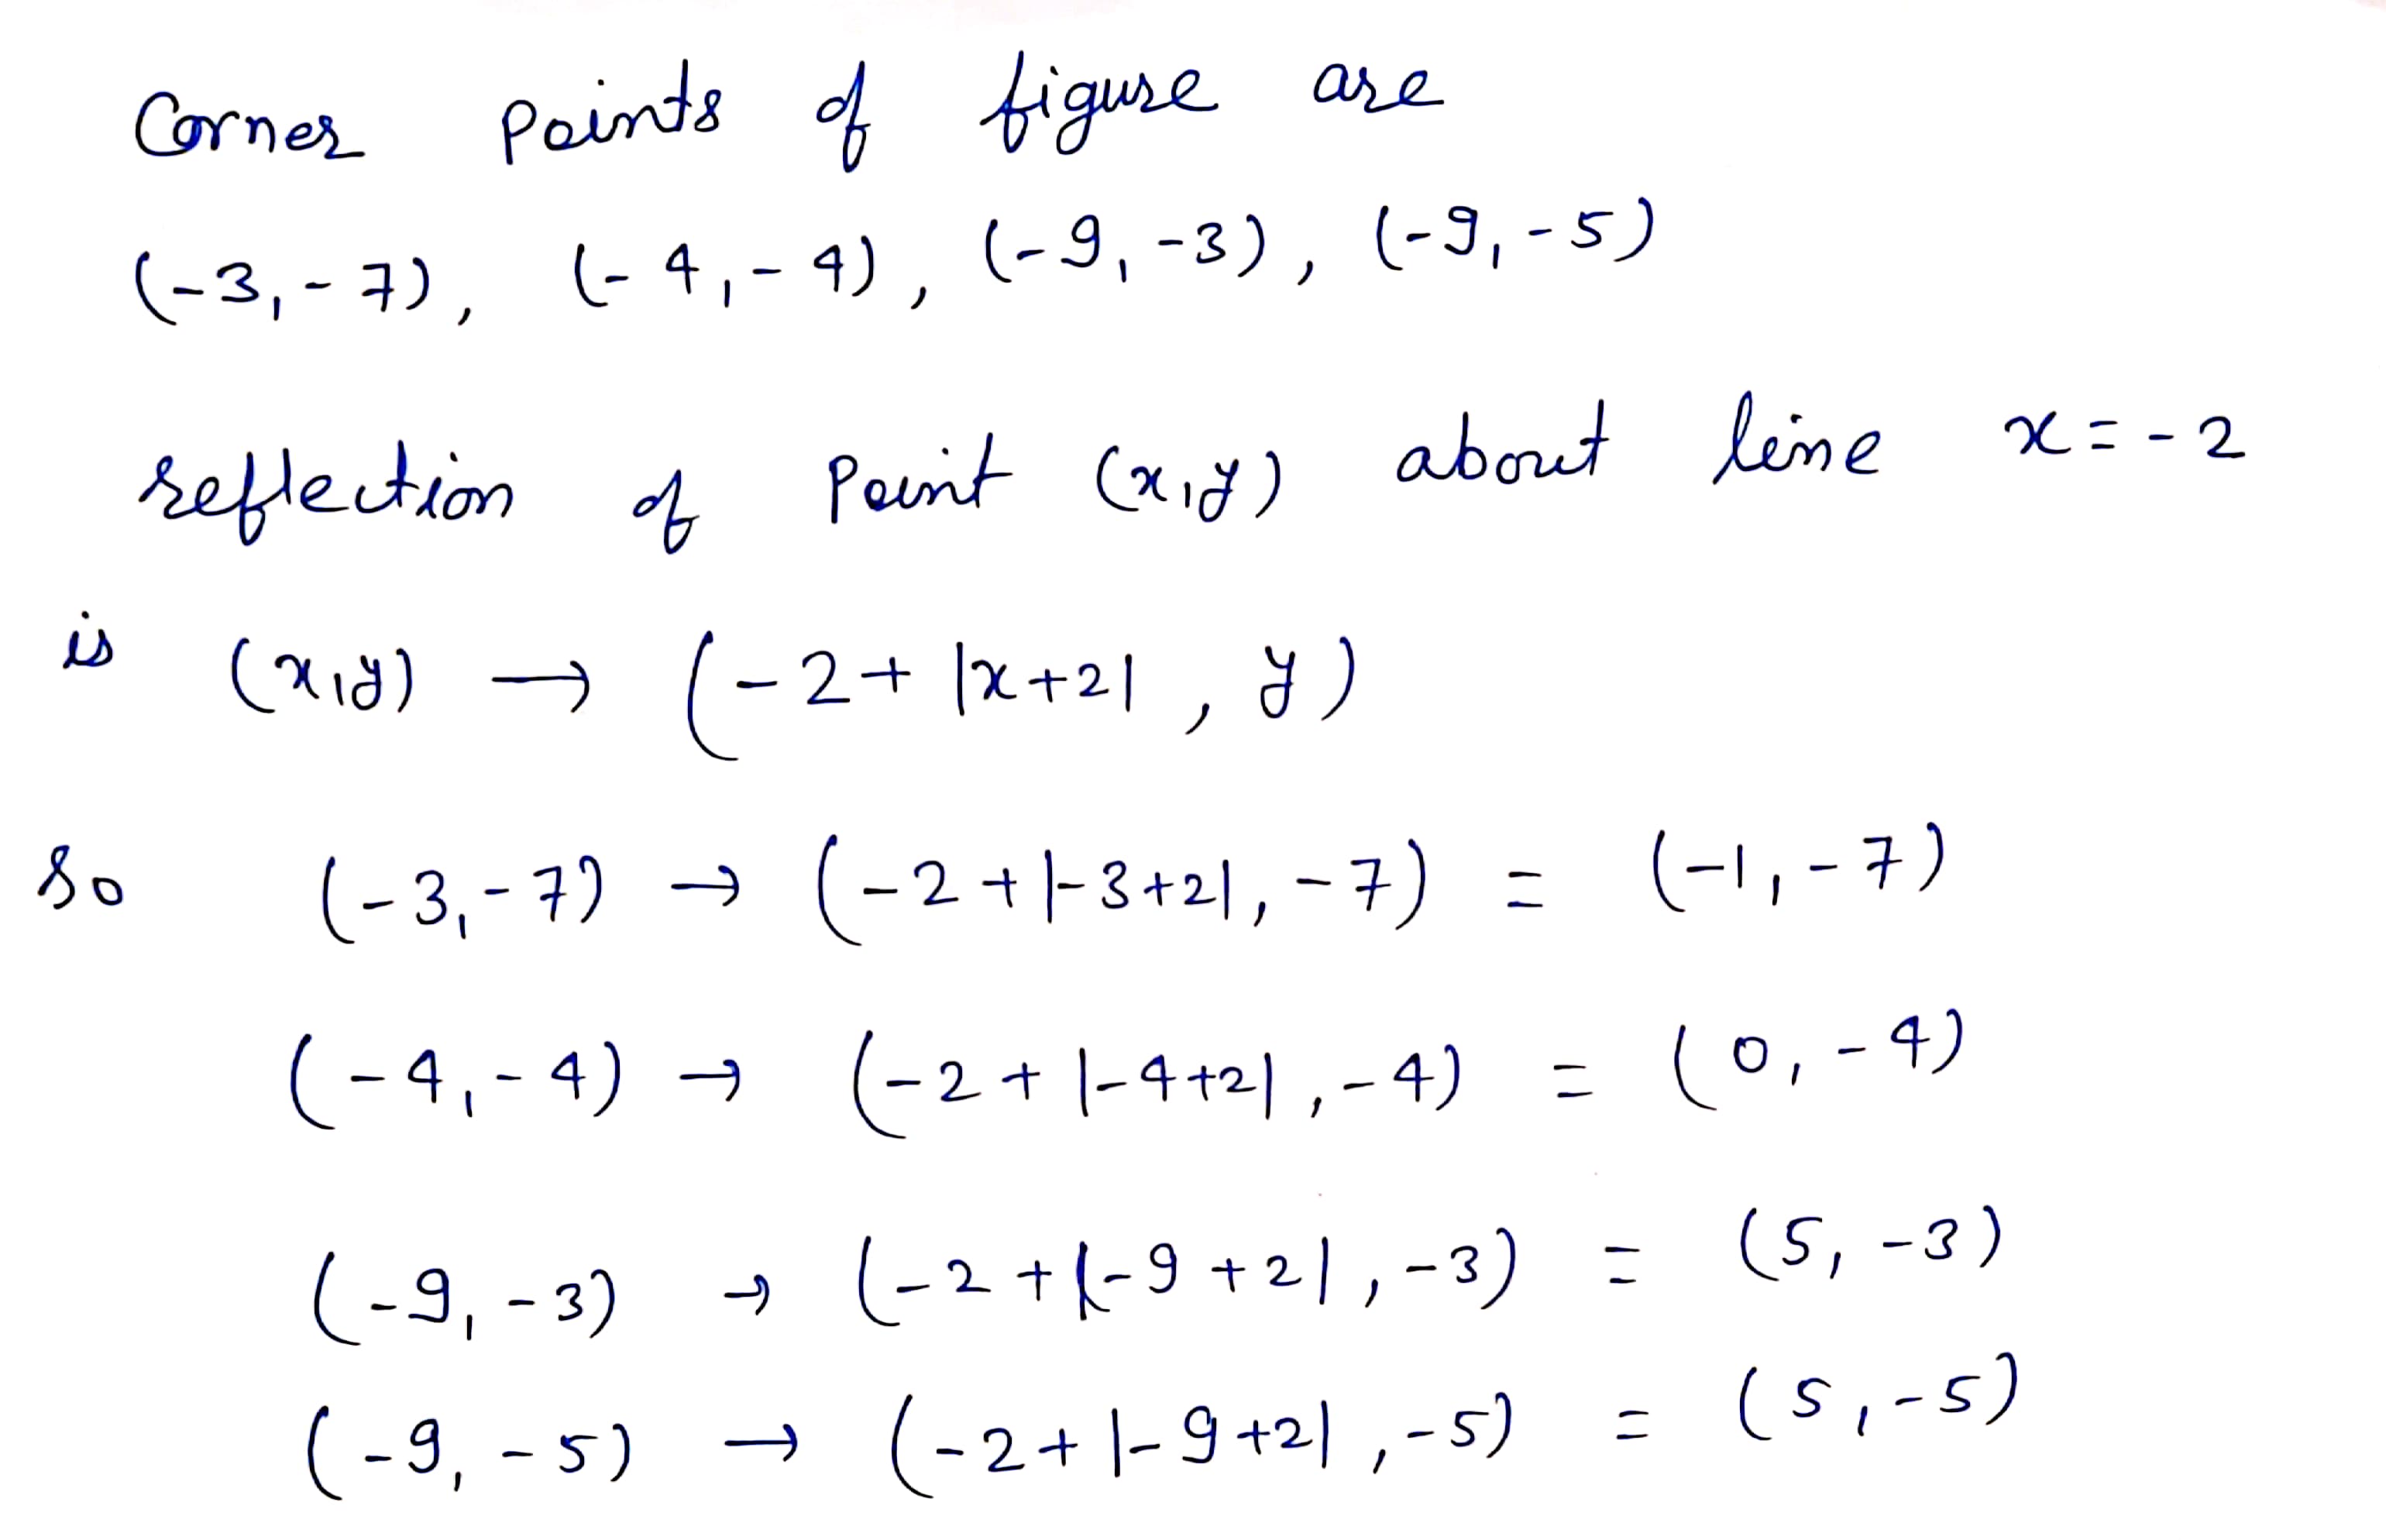 Corner points of figure are
(-3,-7), (-4,-4), (-9,-3), (-9,-5)
reflection of Point (x,y) about line x=-2
is (x,y) → (-2+|x+2|, y)
So (-3,-7) → (-2+|-3+2|,-7) = (-1,-7)
(-4,-4) → (-2+|-4+2|,-4) = (0,-4)
(-9,-3) → (-2+|-9+2|,-3) = (5,-3)
(-9,-5) → (-2+|-9+2|,-5) = (5,-5)